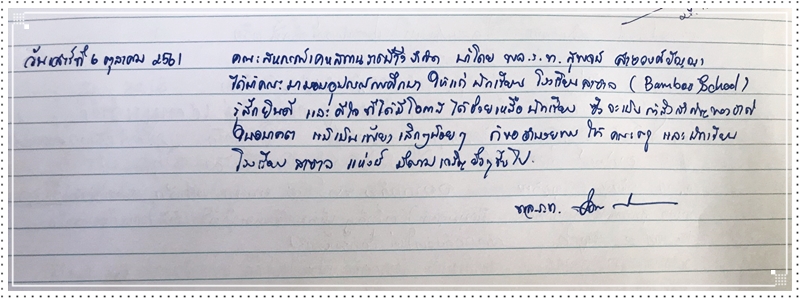 วันเสาร์ที่ 6 ตุลาคม 2561
คณะสหกรณ์เคหสถาน จำกัด นำโดย พล.ร.ท.
ได้นำคณะมามอบอุปกรณ์การศึกษา ให้แก่ นักเรียน โรงเรียน (Bamboo School)
รู้สึกยินดี และ ดีใจ ที่ได้มีโอกาส ได้ช่วยเหลือ นักเรียน ซึ่งจะเป็น กำลังสำคัญของชาติ
ในอนาคต แม้เป็นเพียงเล็กๆน้อยๆ ก็ขออำนวยพร ให้ คณะครู และ นักเรียน
โรงเรียน แห่งนี้ มีความเจริญยิ่งๆขึ้นไป.
พล.ร.ท.